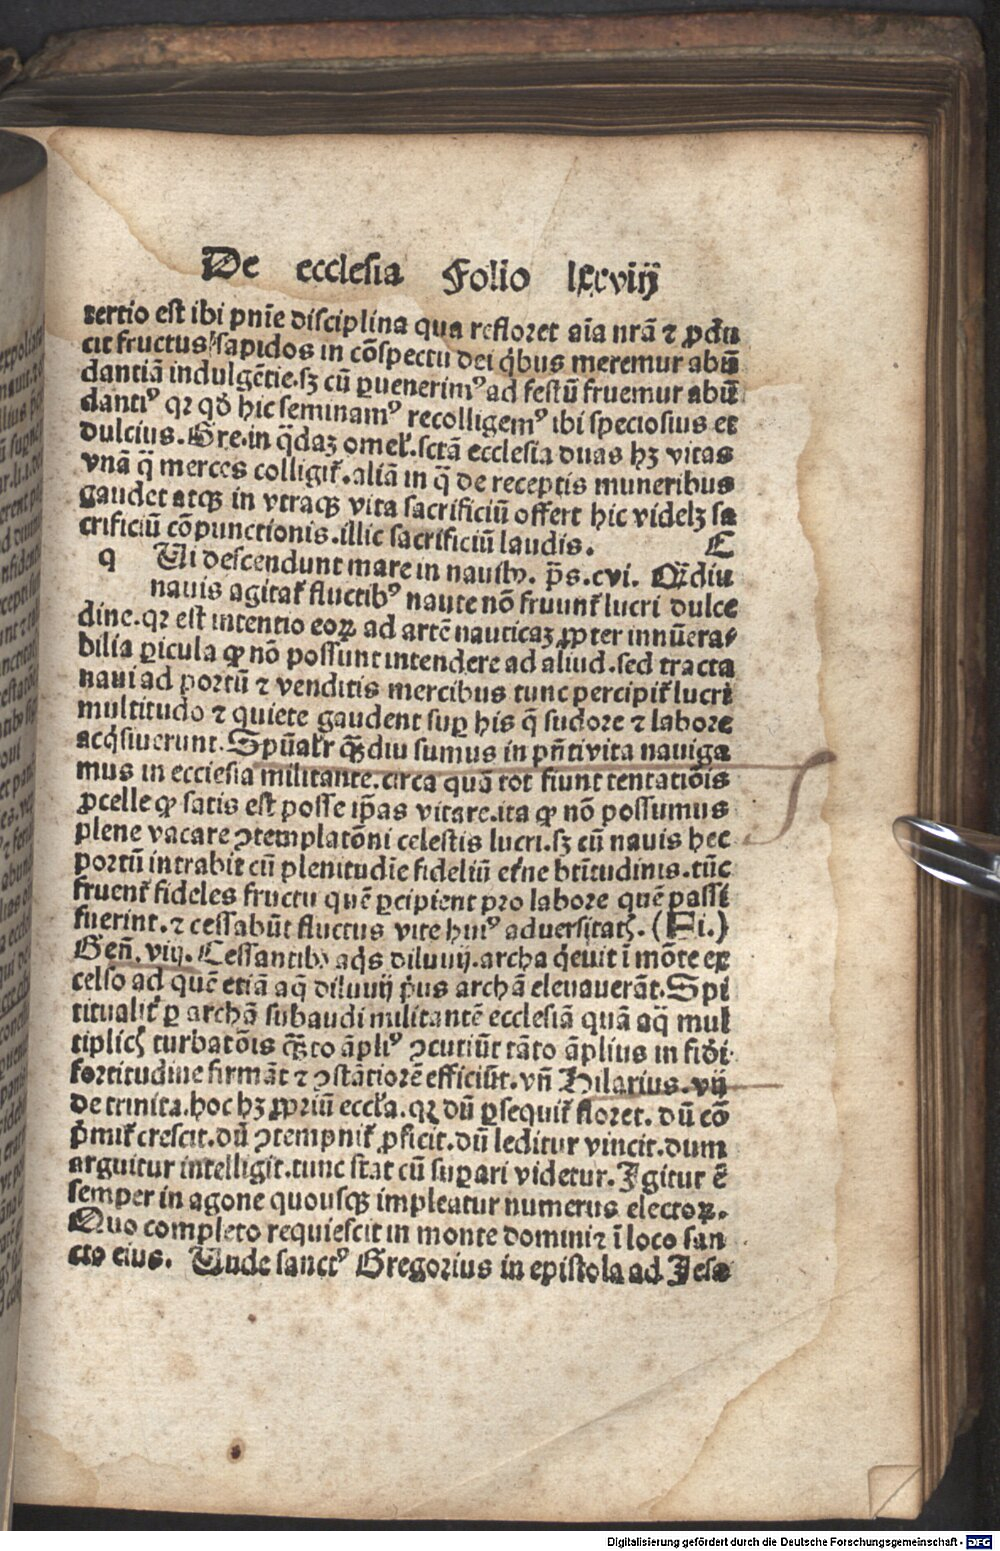 De ecclesia Folio lxxviij
tertio est ibi pnīe disciplina qua refloret aīa nrā ⁊ ꝓdu
cit fructus sapidos in cōspectu dei qͥbus meremur abū
dantiā indulgētie.sꝫ cū ꝑuenerimꝰ ad festū fruemur abū
dantiꝰ qꝛ qḋ hic seminamꝰ recolligemꝰ ibi speciosius et
dulcius. Gre.in q̄daꝫ omel̓.sctā ecclesia duas hꝫ vitas
vnā q̄ merces colligit̓.aliā in q̄ de receptis muneribus
gaudet atqꝫ in vtraqꝫ vita sacrificiū offert hic videlꝫ sa
crificiū cōpunctionis.illic sacrificiū laudis. C
q Ui descendunt mare in nauibꝰ. p̄s.cvi. Qꝫdiu
nauis agitat̓ fluctibꝰ naute nō fruunt̓ lucri dulce
dine.qꝛ est intentio eoꝝ ad artē nauticaꝫ ꝓpter innūera-
bilia ꝑicula qꝫ nō possunt intendere ad aliud.sed tracta
naui ad portū ⁊ venditis mercibus tunc percipit̓ lucri
multitudo ⁊ quiete gaudent suꝑ his q̄ sudore ⁊ labore
acq̇siuerunt. Spūalr̓ qꝫdiu sumus in pn̄ti vita nauiga
mus in ecclesia militante.circa quā tot fiunt tentatiōis
ꝓcelle qꝫ satis est posse ip̄as vitare.ita qꝫ nō possumus
plene vacare ꝯtemplatōni celestis lucri.sꝫ cū nauis hec
portū intrabit cū plenitudīe fideliū et̓ne btītudinis.tūc
fruent̓ fideles fructu quē ꝑcipient pro labore quē passi
fuerint.⁊ cessabūt fluctus vite huiꝰ aduersitatꝭ. (Fi.)
Geñ. viij. Cessantibꝰ aq̇s diluuij.archa q̇euit ī mōte ex
celso ad quē etiā aq̄ diluuij p̓us archā eleuauerāt. Spi
ritualit̓ ꝑ archā subaudi militantē ecclesiā quā aq̄ mul
tiplicꝭ turbatōis qꝫto āpliꝰ ꝯcutiūt tāto āplius in fidei
fortitudine firmāt ⁊ ꝯstātiorē efficiūt.vñ Hilarius.vij
de trinita.hoc hꝫ ꝓpriū eccl̓a.qꝛ dū ꝑsequit̓ floret. dū cō
p̓mit̓ crescit.dū ꝯtempnit̓ ꝓficit.dū leditur vincit.dum
arguitur intelligit.tunc stat cū suꝑari videtur. Igitur ē
semper in agone quousqꝫ impleatur numerus electoꝝ.
Quo completo requiescit in monte domini ⁊ ī loco san
cto eius. Unde sanctꝰ Gregorius in epistola ad Jesa
Digitalisierung gefördert durch die Deutsche Forschungsgemeinschaft - DFG